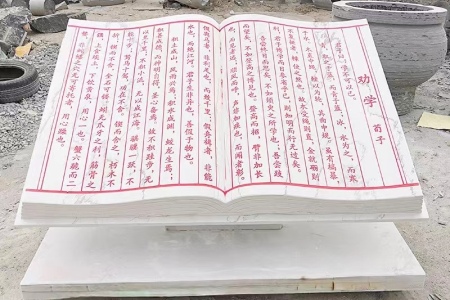 劝学
荀子
君子曰：学不可以已。
青，取之于蓝，而青于蓝；冰，水为之，而寒
于水。木直中绳，輮以为轮，其曲中规。虽有槁暴，
不复挺者，輮使之然也。故木受绳则直，金就砺则
利，君子博学而日参省乎己，则知明而行无过矣。
吾尝终日而思矣，不如须臾之所学也；吾尝跂
而望矣，不如登高之博见也。登高而招，臂非加长
也，而见者远；顺风而呼，声非加疾也，而闻者彰。
假舆马者，非利足也，而致千里；假舟楫者，非能
水也，而绝江河。君子生非异也，善假于物也。
积土成山，风雨兴焉；积水成渊，蛟龙生焉；
积善成德，而神明自得，圣心备焉。故不积跬步，无
以至千里；不积小流，无以成江海。骐骥一跃，不
能十步；驽马十驾，功在不舍。锲而舍之，朽木不
折；锲而不舍，金石可镂。蚓无爪牙之利，筋骨之
强，上食埃土，下饮黄泉，用心一也。蟹六跪而二
螯，非蛇鳝之穴无可寄托者，用心躁也。